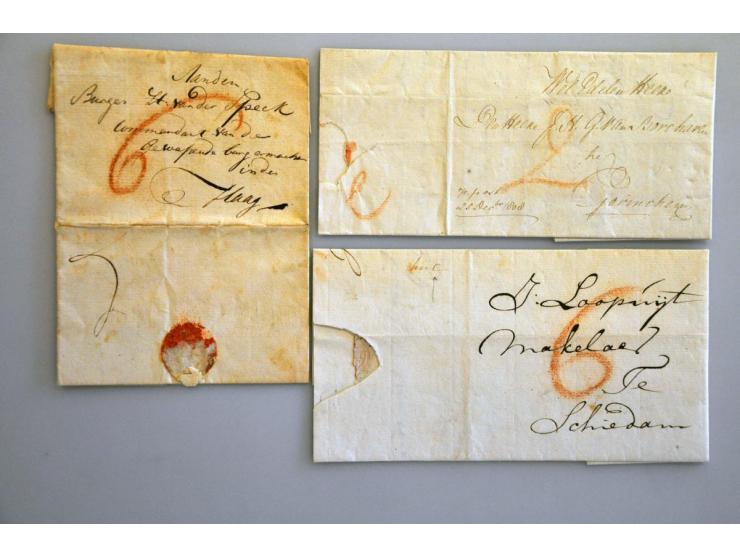 Aanden
Burger H. van der Speck
Commandant van de
Gewapende burgermachten
in den
Haag
6
Wel Edelen Heere
Den Heere J. H. G. van
te
Gorinchem
2
p. post
28 Decbr 1808
J. Loopuijt
Makelaer
Te
Schiedam
6